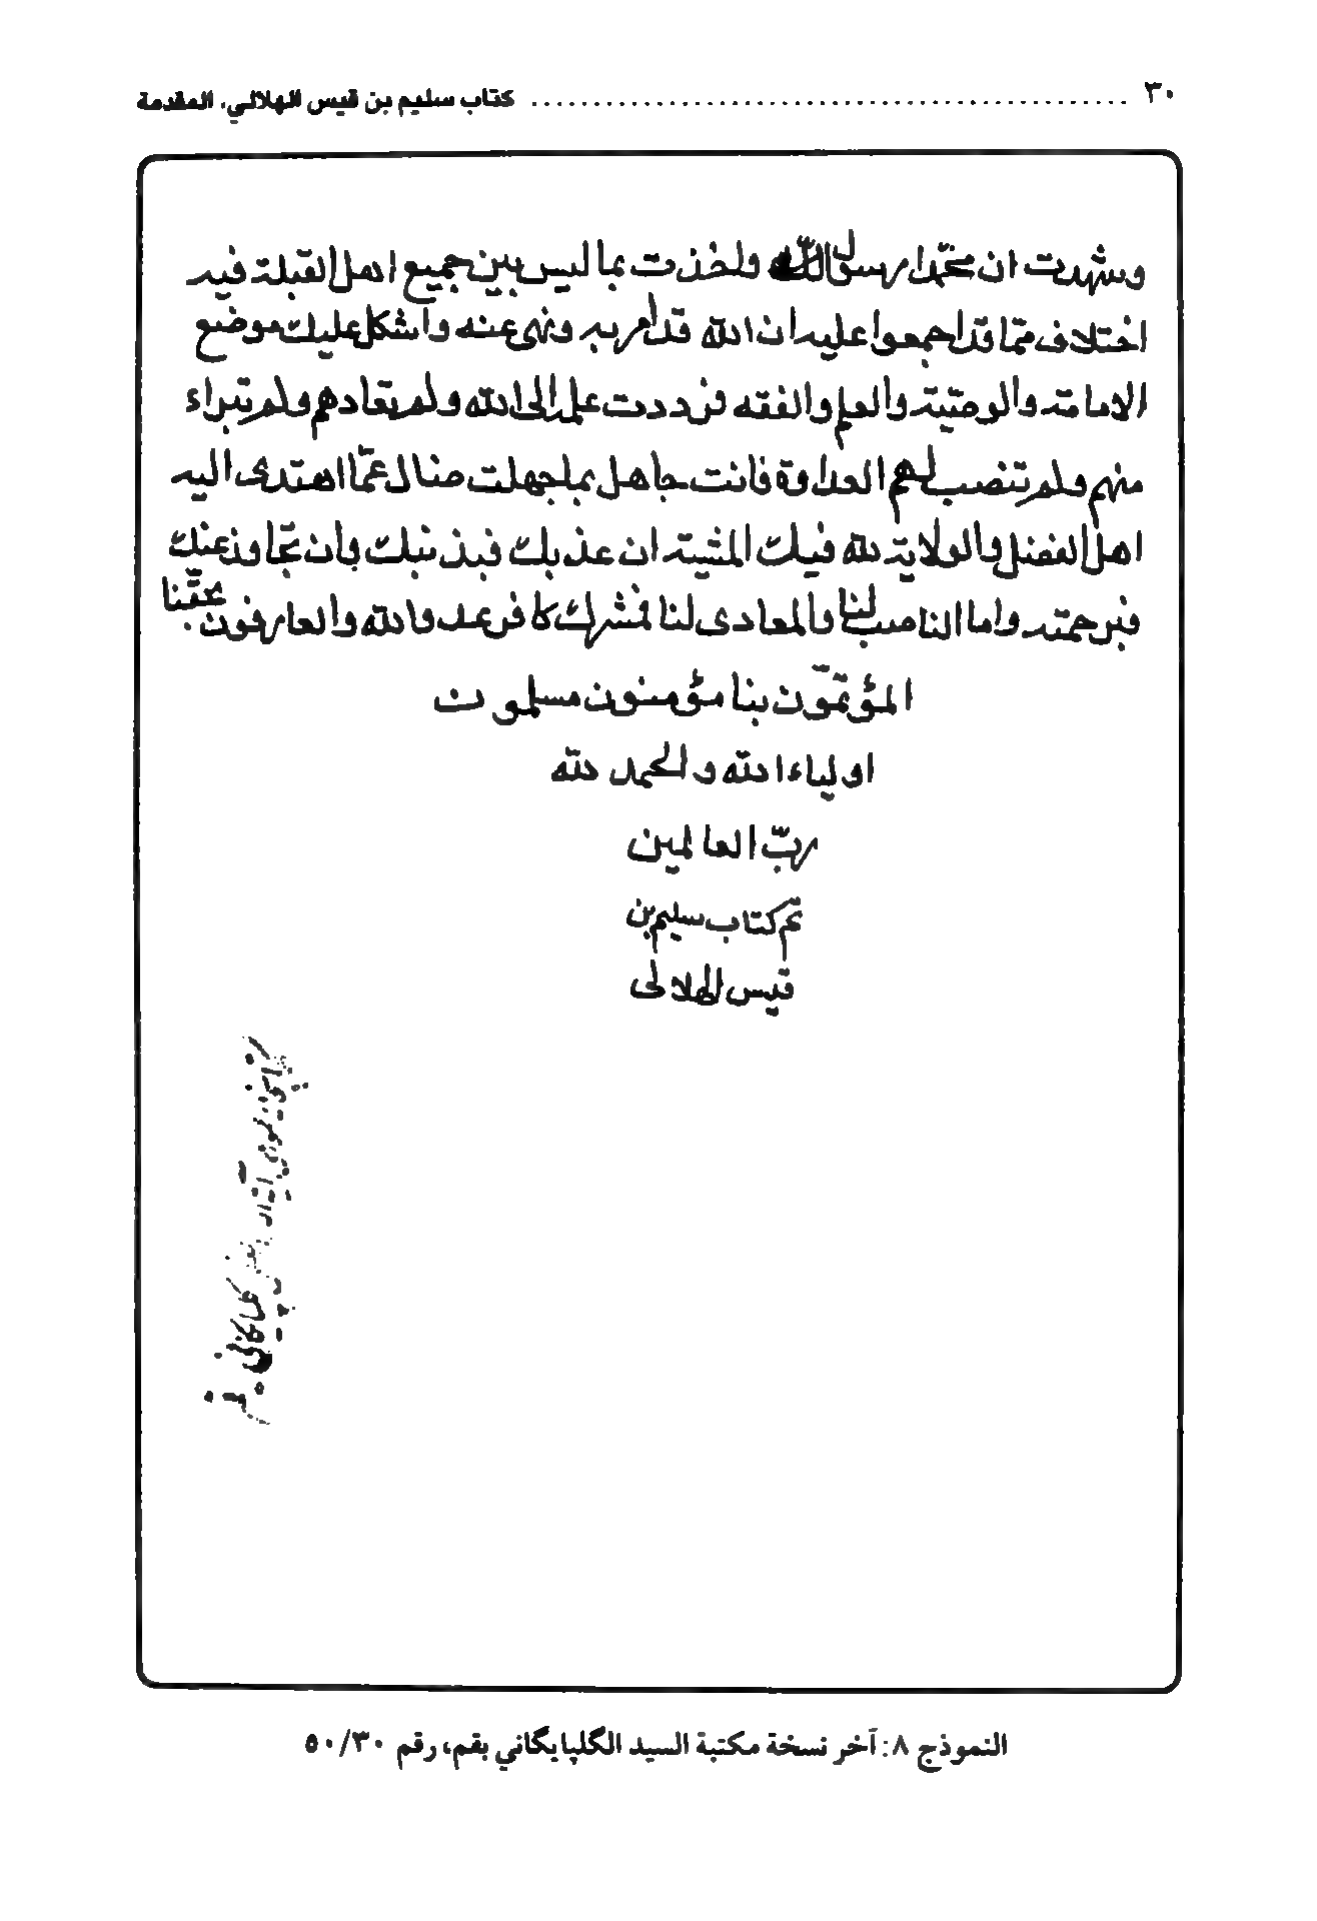 ٣٠ ........ كتاب سليم بن قيس الهلالي، المقدمة
وشهدت ان محمّدا رسول اللّه واخذت بما ليس بين جميع اهل القبلة فيه
اختلاف ممّا قد اجمعوا عليه ان الله قد امر به ونهى عنه واشكل عليك موضع
الامامة والوصيّة والعلم والفقه فرددت علمه الى الله ولم تعادهم ولم تبراء
منهم ولم تنصب لهم العداوة فانت جاهل بما جهلت ضال عمّا اهتدى اليه
اهل الفضل والولاية لله فيك المشية ان عذبك فبذنبك وان تجاوز عنك
فبرحمته واما الناصب لنا والمعادى لنا فمشرك كافر عدو الله والعارفون بحقّنا
المؤتمّون بنا مؤمنون مسلمون
اولياء الله والحمد لله
ربّ العالمين
تم كتاب سليم بن
قيس الهلالى
كتابخانه عمومي آية الله گلپايگاني - قم
النموذج ٨: آخر نسخة مكتبة السيد الگلپايگاني بقم، رقم ٥٠/٣٠